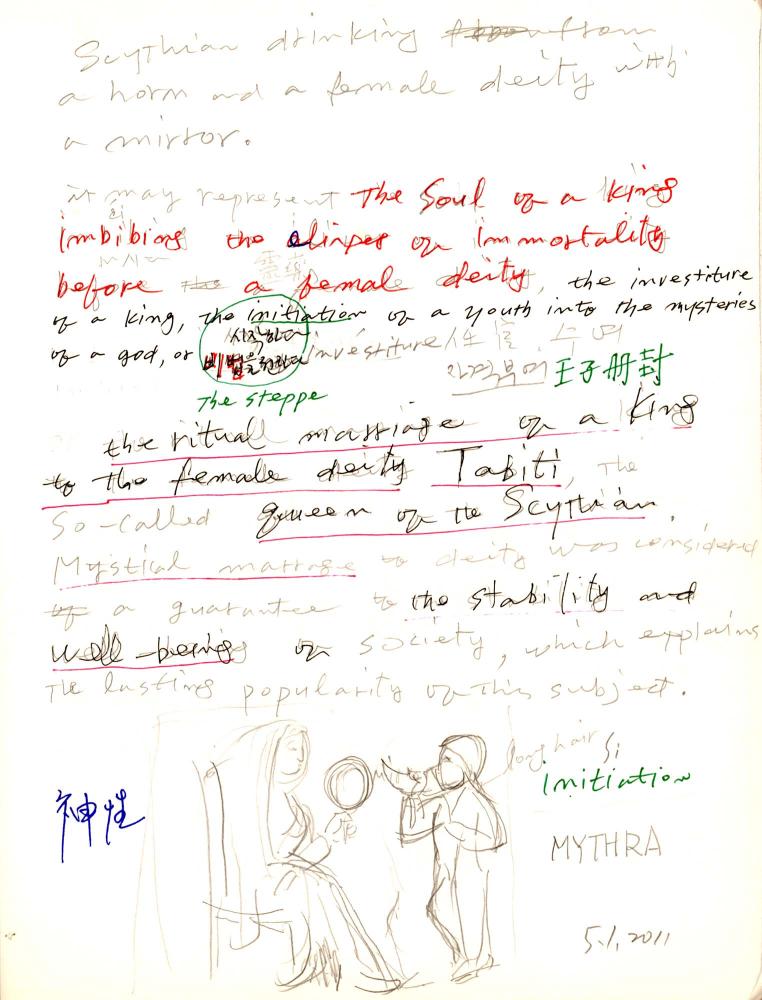 Scythian drinking from
a horn and a female deity with
a mirror.
it may represent The Soul of a king
imbibing the elixes of immortality
마시다
before the a female deity, the investiture
of a king, the initiation of a youth into the mysteries
of a god, or
시작하다
비법을전하다
investiture
자격부여 王子册封
The steppe
the ritual marriage of a King
to the female deity Tabiti, The
So-called queen of the Scythian.
Mystical marrage to deity was considered
of a guarantee to the stability and
well-being of society, which explains
The lasting popularity of this subject.
long hair
Initiation
神性
MYTHRA
5.1, 2011